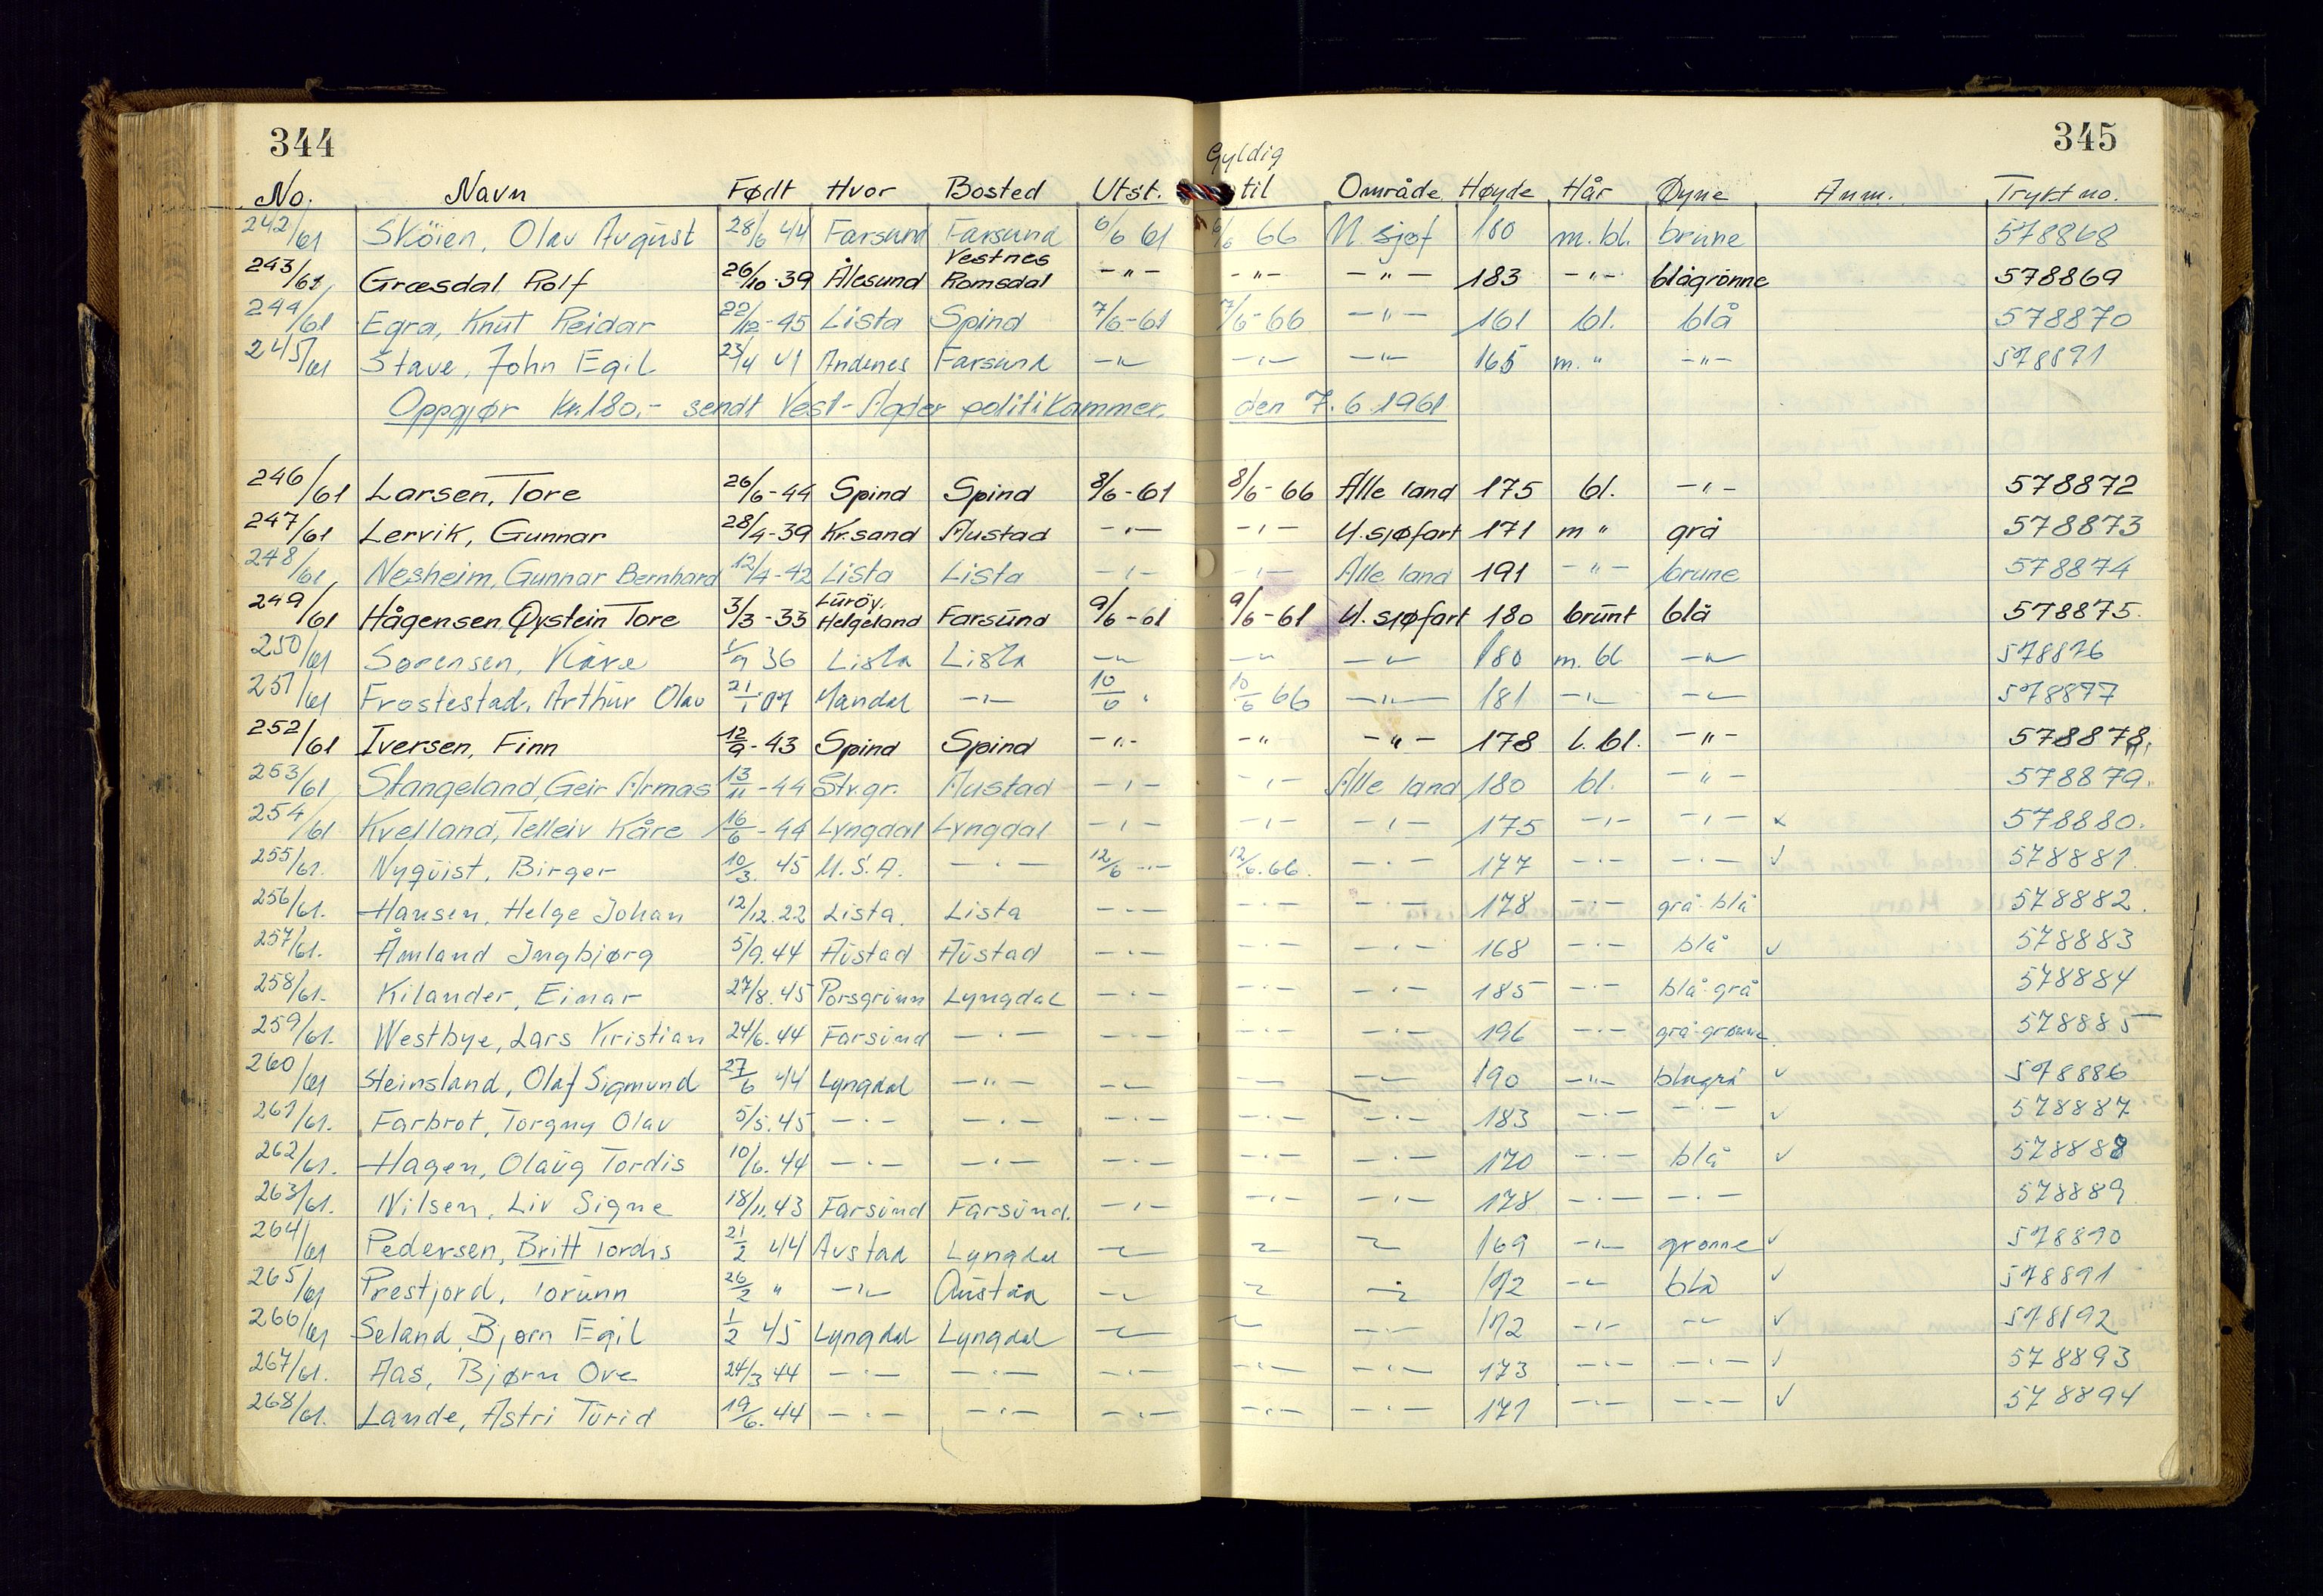 344
345
Gyldig
No. Navn Født Hvor Bosted Utst. til Område Høyde Hår Øyne Anm. Trykt no.
242/61 Sköien, Olav August 28/6 44 Farsund Farsund 6/6 61 6/6 66 U. sjøf 180 m. bl. brune 578868
243/61 Græsdal Rolf 26/10-39 Ålesund Vestnes Romsdal -"- -"- -"- 183 -"- blågrønne 578869
244/61 Egra, Knut Reidar 22/12-45 Lista Spind 7/6-61 7/6-66 -"- 161 bl. blå 578870
245/61 Stave, John Egil 23/4 41 Andenes Farsund -"- -"- -"- 165 m. " -"- 578871
Oppgjør kr. 180,- sendt Vest-Agder politikammer. den 7. 6 1961
246/61 Larsen, Tore 26/6-44 Spind Spind 8/6-61 8/6-66 Alle land 175 bl. -"- 578872
247/61 Lervik, Gunnar 28/4-39 Kr.sand Austad -"- -"- U.sjøfart 171 m " grå 578873
248/61 Nesheim, Gunnar Bernhard 12/4-42 Lista Lista -"- -"- Alle land 191 -"- brune 578874
249/61 Hågensen Øystein Tore 3/3-33 Lüröy. Helgeland Farsund 9/6-61 9/6-61 U. sjøfart 180 brunt blå 578875.
250/61 Sørensen, Kåre 1/9 36 Lista Lista -"- -"- -"- 180 m. bl -"- 578876
251/61 Frostestad, Arthur Olav 21/1 07 Mandal -"- 10/6 " 10/6 66 -"- 181 -"- -"- 578877
252/61 Iversen, Finn 12/9-43 Spind Spind -"- -"- -"- 178 l. bl. -"- 578878.
253/61 Stangeland, Geir Armas 13/11-44 Stv.gr. Austad -"- -"- Alle land 180 bl. -"- 578879.
254/61 Kvelland, Telleiv Kåre 16/6-44 Lyngdal Lyngdal -"- -"- -"- 175 -"- -"- x 578880.
255/61. Nyqvist, Birger 10/3. 45 U.S.A. -"- 12/6 -"- 12/6.66. -"- 177 -"- -"- v 578881.
256/61. Hansen, Helge Johan 12/12.22 Lista. Lista -"- -"- -"- 178 -"- grå-blå 578882.
257/61. Åmland Ingbjørg 5/9.44 Austad Austad -"- -"- -"- 168 -"- blå v 578883
258/61. Kilander, Einar 27/8.45 Porsgrunn Lyngdal -"- -"- -"- 185 -"- blå-grå 578884
259/61. Westbye, Lars Kristian 24/6.44 Farsund -"- -"- -"- -"- 196 -"- grå-grønne. 578885
260/61 Steinsland, Olaf Sigmund 27/6 44 Lyngdal -"- -"- -"- -"- 190 -"- blågrå v 578886
261/61. Farbrot, Torgny Olav 5/5.45 -"- -"- -"- -"- -"- 183 -"- -"- v 578887
262/61. Hagen, Olaug Tordis 10/6.44 -"- -"- -"- -"- -"- 170 -"- blå v 578888
263/61. Nilsen, Liv Signe 18/11.43 Farsund Farsund. -"- -"- -"- 178 -"- -"- 578889
264/61 Pedersen, Britt Tordis 21/2 44 Austad Lyngdal -"- -"- -"- 169 -"- grønne v 578890
265/61 Prestjord, Torunn 26/2 " -"- Austad -"- -"- -"- 172 -"- blå v 578891
266/61 Seland, Bjørn Egil 1/2 45 Lyngdal Lyngdal -"- -"- -"- 172 -"- -"- v 578892
267/61. Aas, Bjørn Ove 24/3 44 -"- -"- -"- -"- -"- 173 -"- -"- v 578893
268/61. Lande, Astri Turid 19/6.44 -"- -"- -"- -"- -"- 171 -"- -"- v 578894